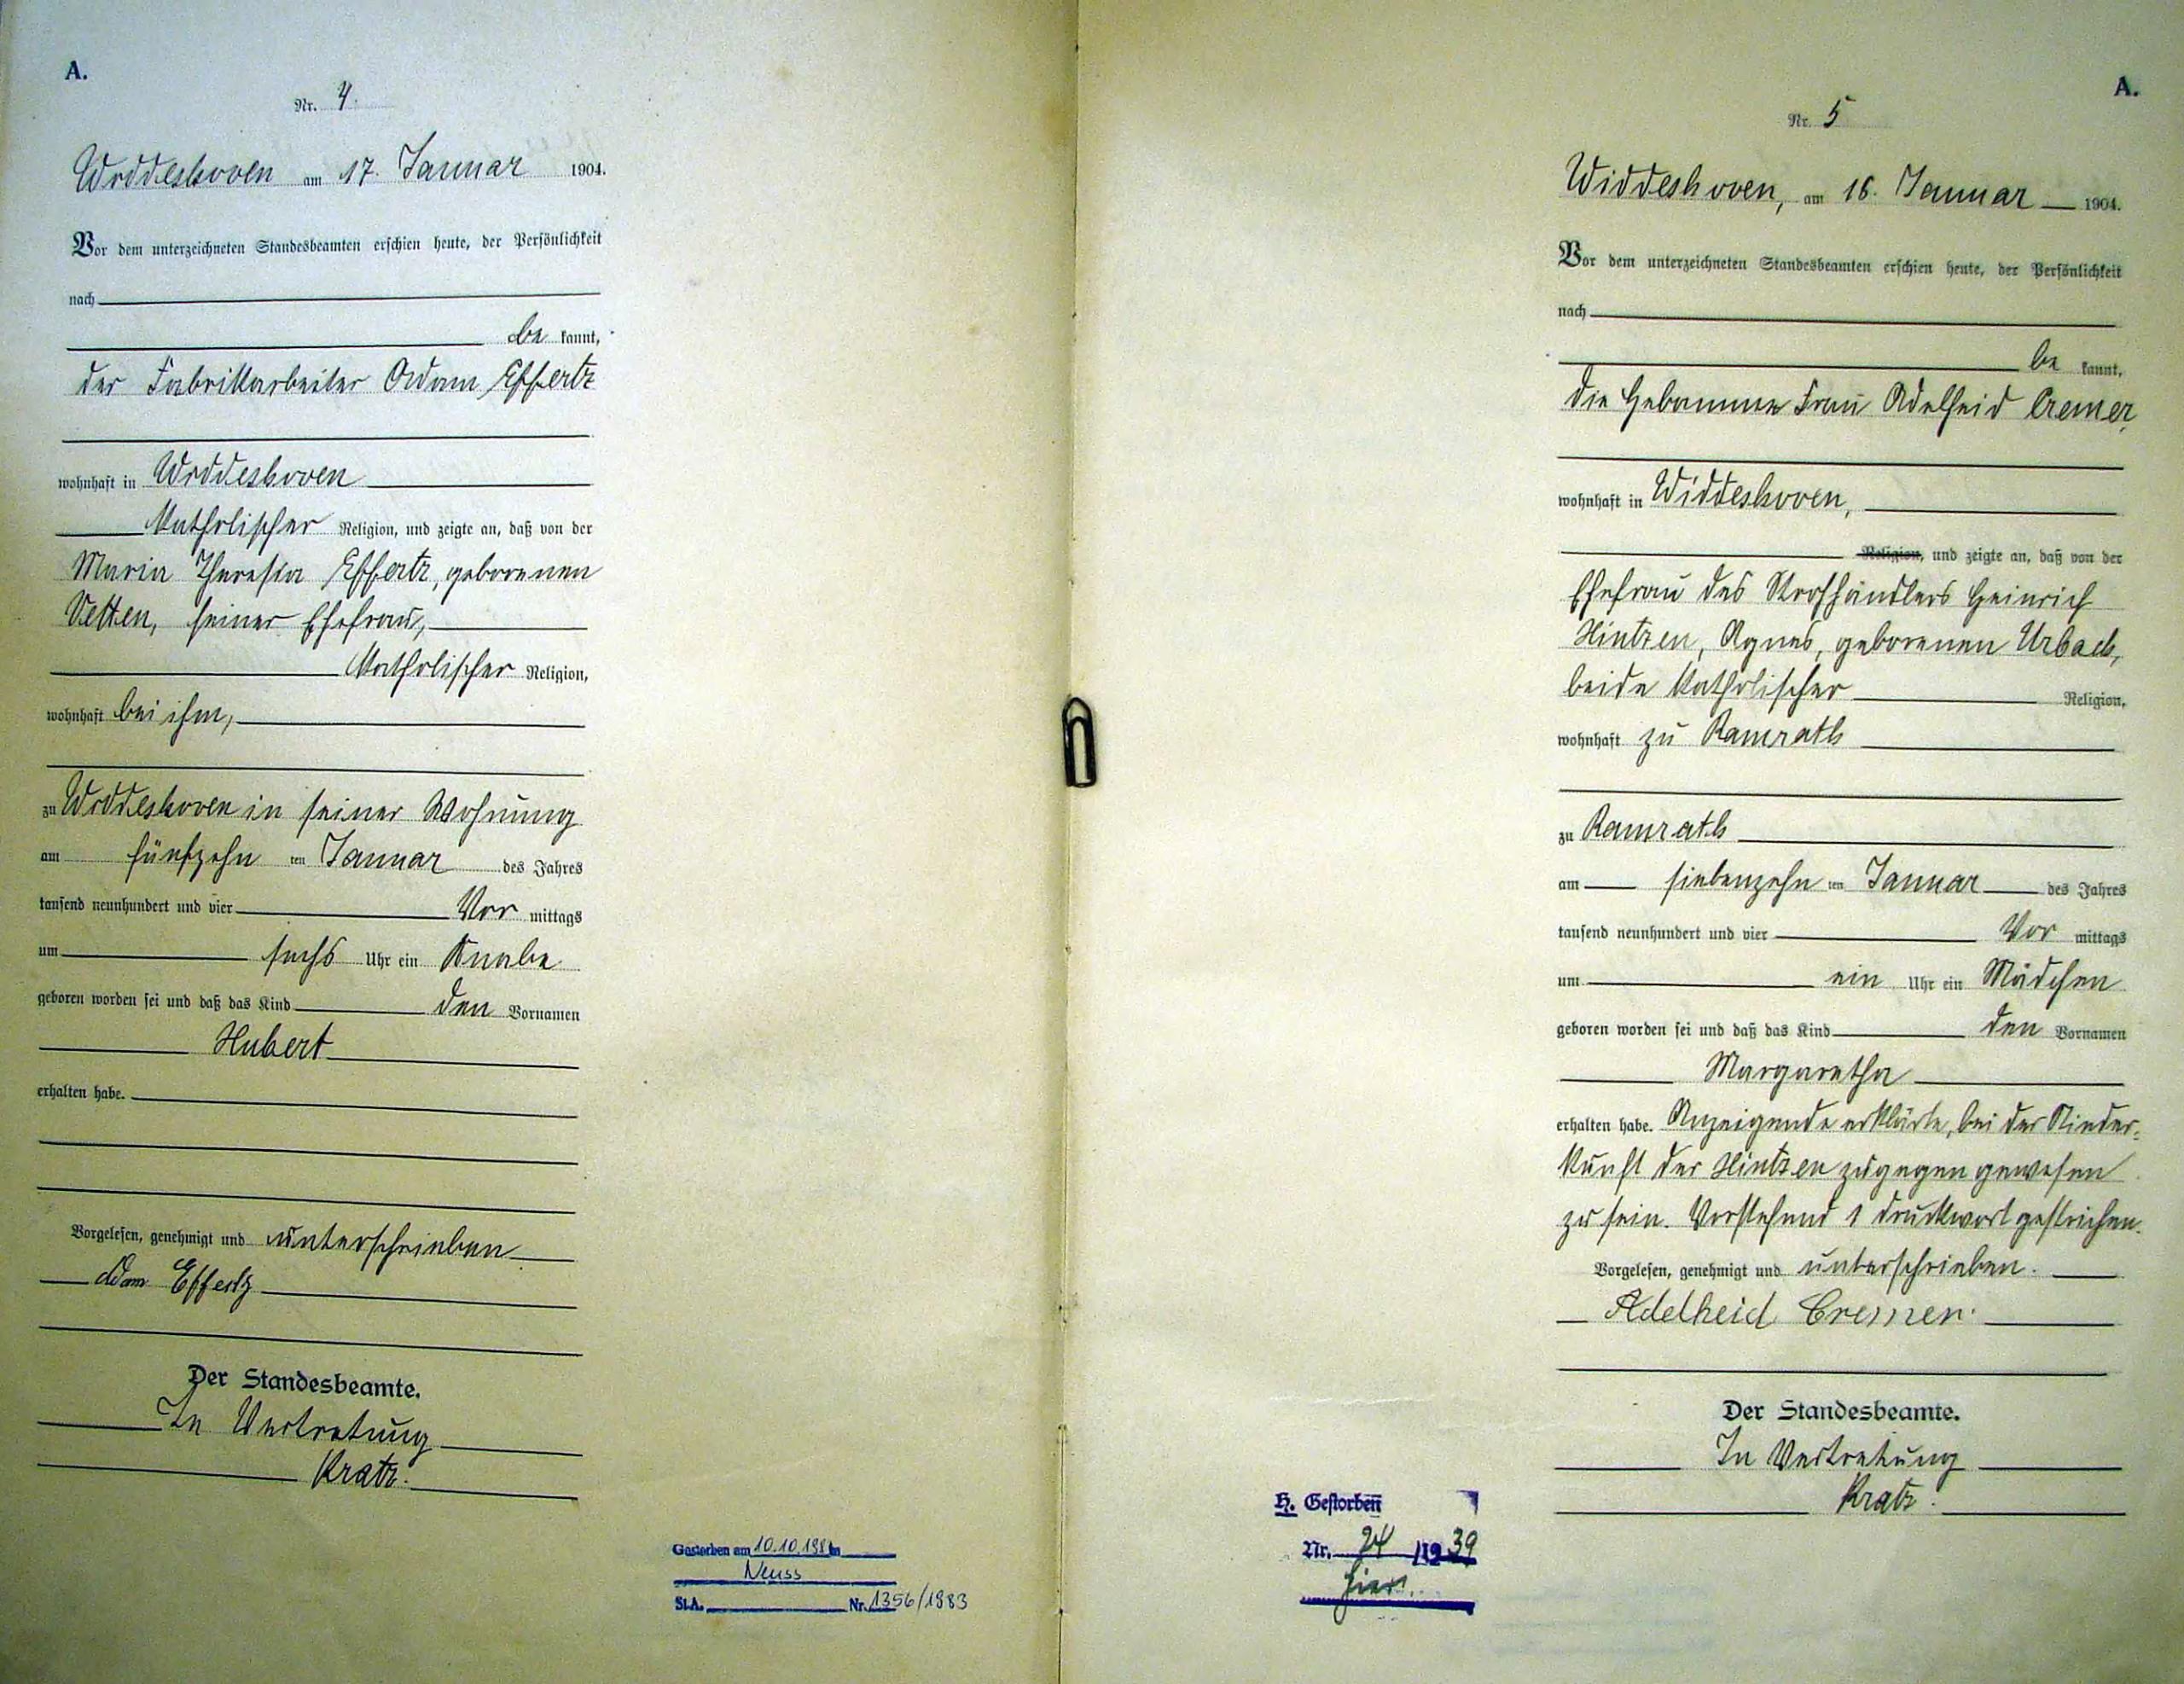 A.
Nr. 4.
Widdeshoven am 17. Januar 1904.
Vor dem unterzeichneten Standesbeamten erschien heute, der Persönlichkeit
nach
be kannt,
der Fabrikarbeiter Adam Effertz
wohnhaft in Widdeshoven
katholischer Religion, und zeigte an, daß von der
Maria Theresia Effertz, geborenen
Vetten, seiner Ehefrau,
katholischer Religion,
wohnhaft bei ihm,
zu Widdeshoven in seiner Wohnung
am fünfzehn ten Januar des Jahres
tausend neunhundert und vier Vor mittags
um sechs Uhr ein Knabe
geboren worden sei und daß das Kind den Vornamen
Hubert
erhalten habe.
Vorgelesen, genehmigt und unterschrieben
Adam Effertz
Der Standesbeamte.
In Vertretung
Kratz.
Gestorben am 10.10.198
Neuss
St.A. Nr. 1356/1983
A.
Nr. 5
Widdeshoven, am 18. Januar 1904.
Vor dem unterzeichneten Standesbeamten erschien heute, der Persönlichkeit
nach
be kannt,
die Hebamme Frau Adelheid Cremer,
wohnhaft in Widdeshoven,
Religion, und zeigte an, daß von der
Ehefrau des Strohhändlers Heinrich
Hintzen, Agnes, geborenen Urbach,
beide katholischer Religion,
wohnhaft zu Ramrath
zu Ramrath
am siebenzehn ten Januar des Jahres
tausend neunhundert und vier Vor mittags
um ein Uhr ein Mädchen
geboren worden sei und daß das Kind den Vornamen
Margaretha
erhalten habe. Anzeigende erklärte, bei der Nieder-
kunft der Hintzen zugegen gewesen
zu sein. Vorstehend 1 Druckwort gestrichen.
Vorgelesen, genehmigt und unterschrieben.
Adelheid Cremer.
Der Standesbeamte.
In Vertretung
Kratz.
H. Gestorben
Nr. 24 /19 39
hier.